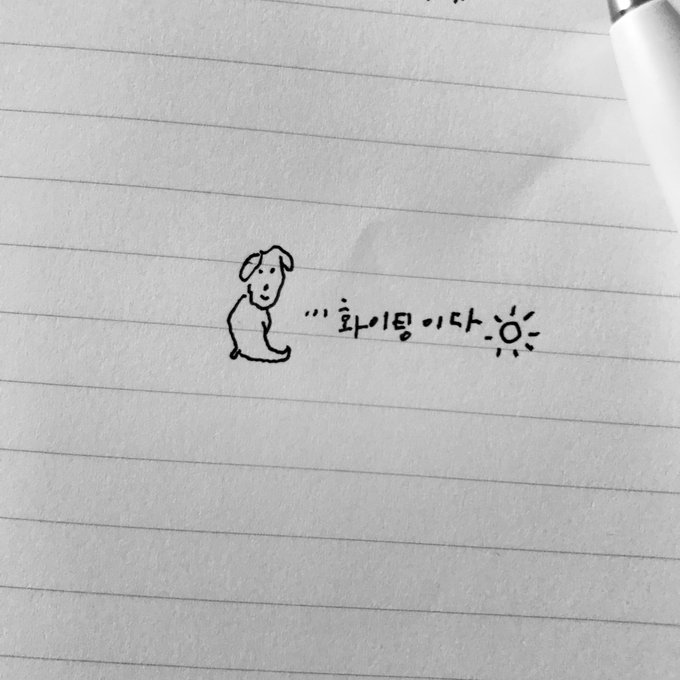 ... 화이팅이다